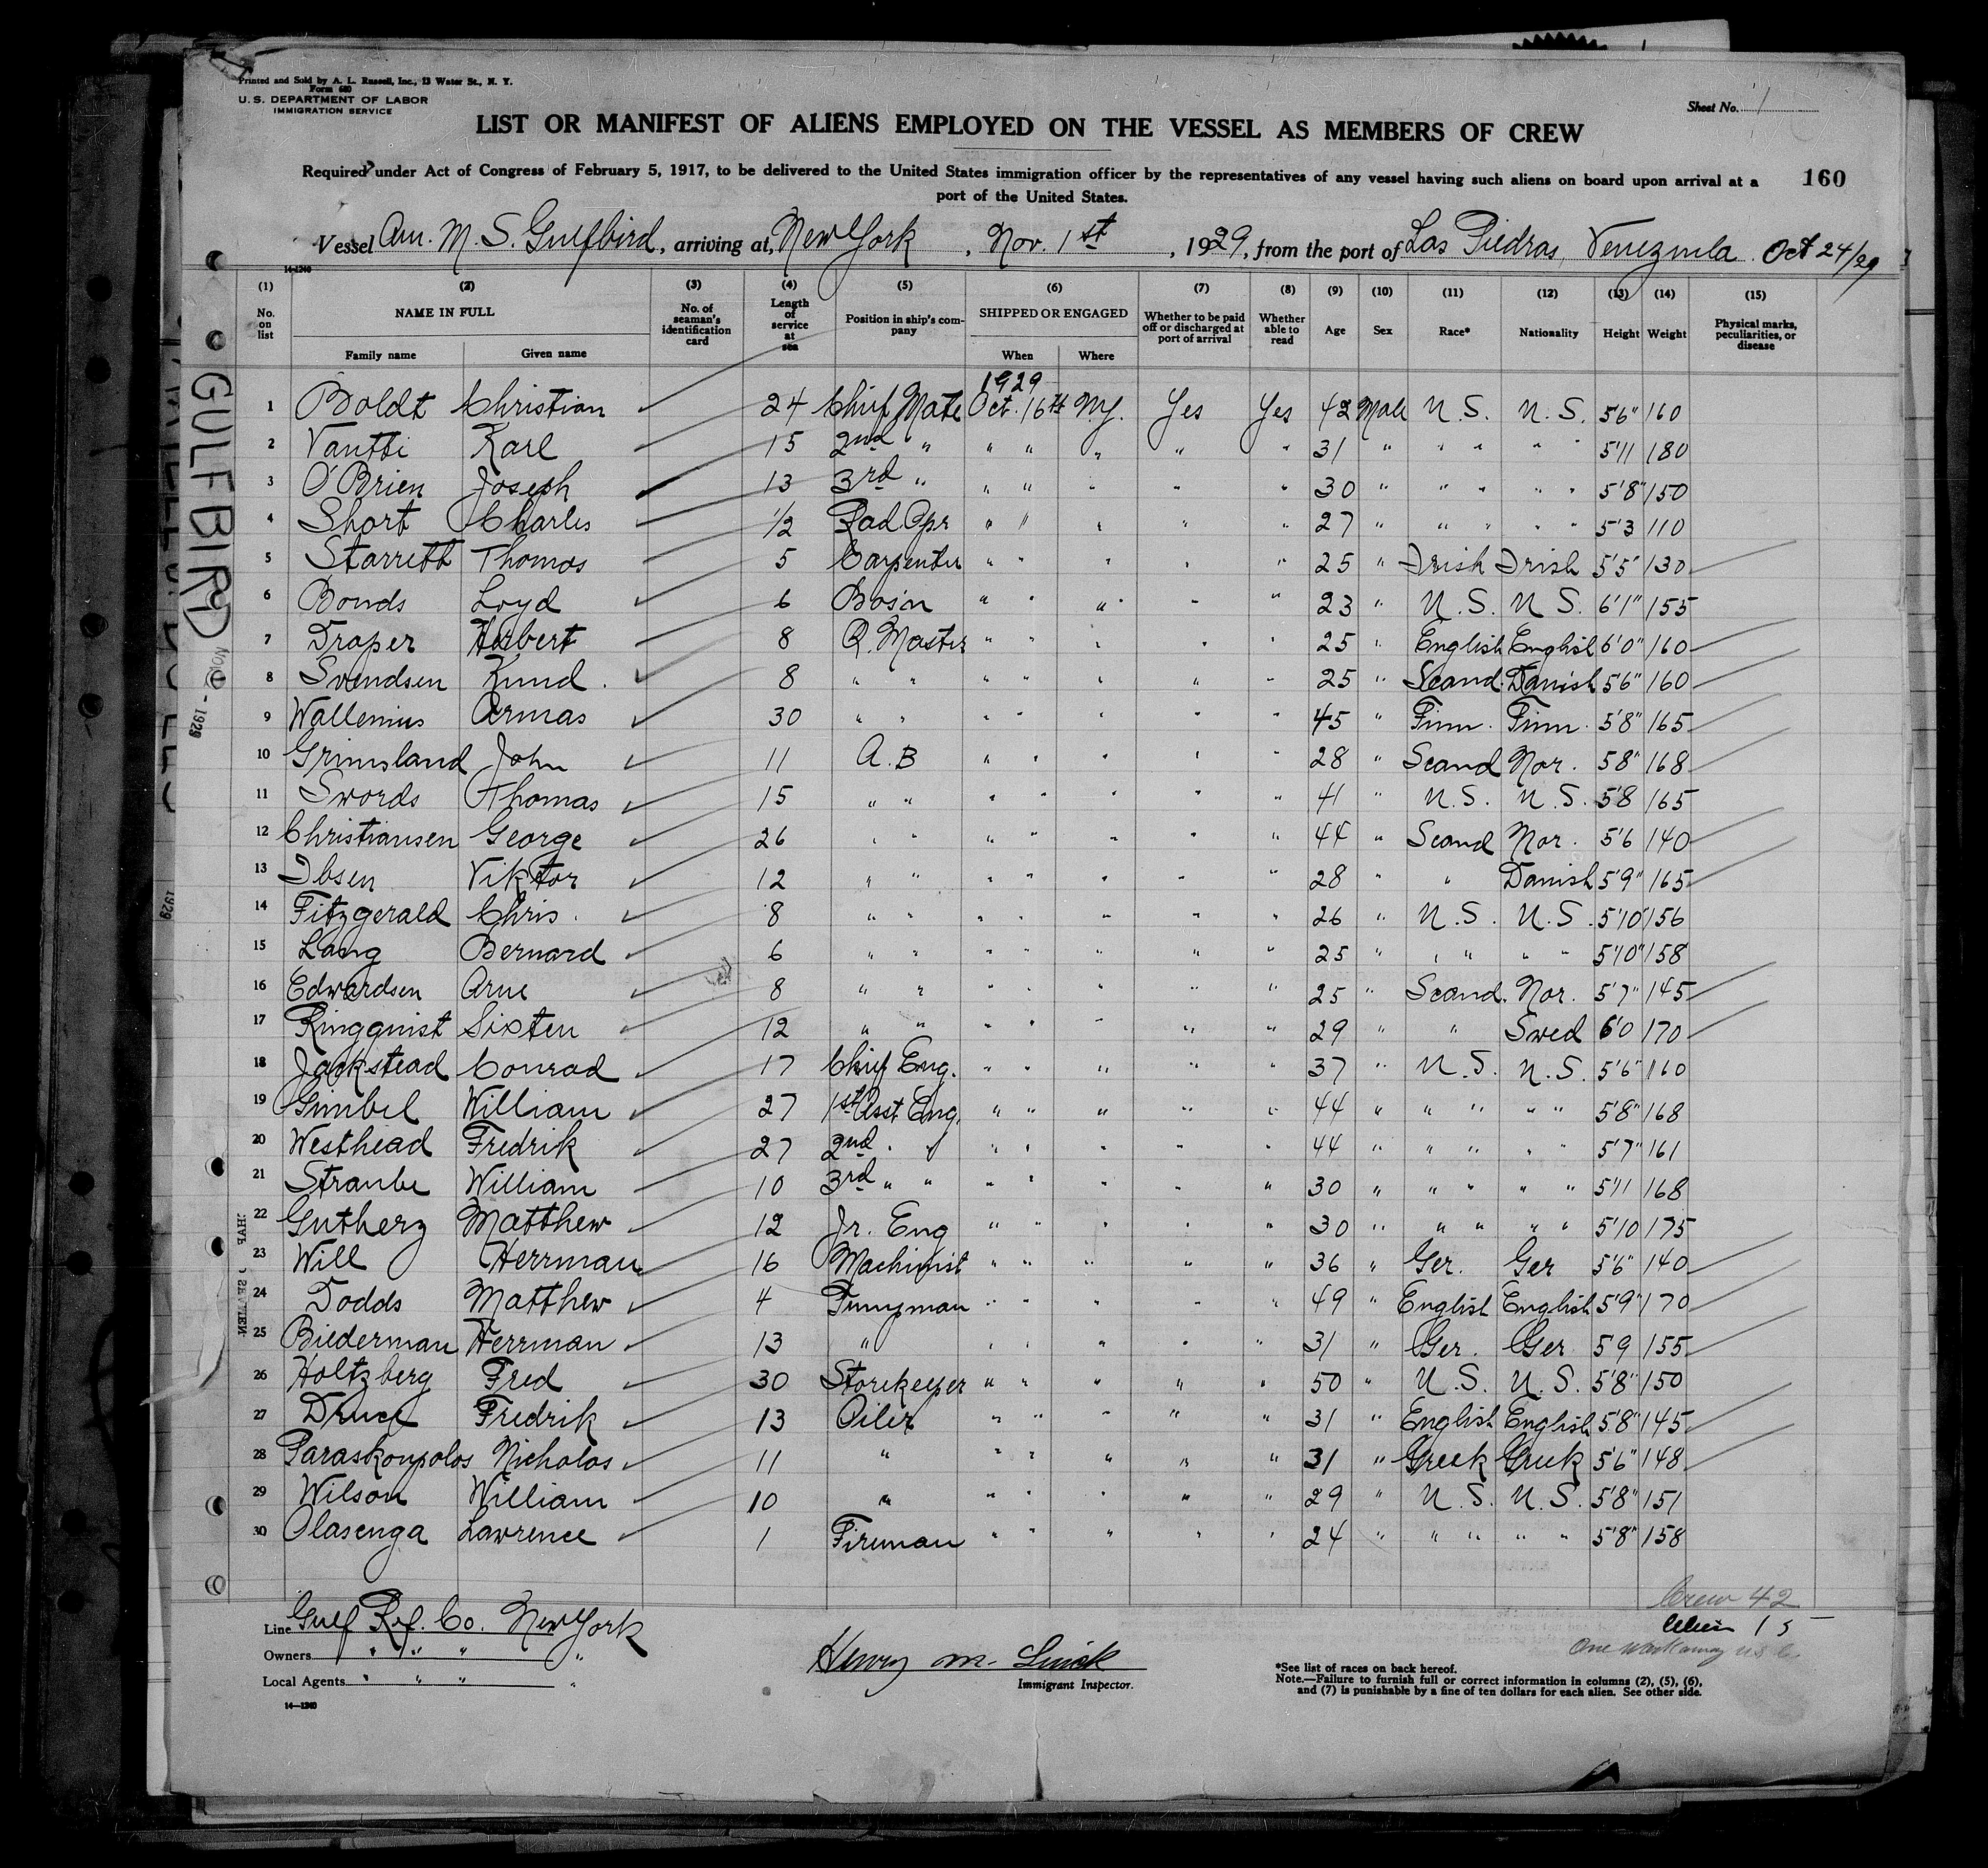 Printed and Sold by A. L. Russell, Inc., 13 Water St., N. Y.
Form 680
U. S. DEPARTMENT OF LABOR
IMMIGRATION SERVICE
Sheet No. 1
LIST OR MANIFEST OF ALIENS EMPLOYED ON THE VESSEL AS MEMBERS OF CREW
Required under Act of Congress of February 5, 1917, to be delivered to the United States immigration officer by the representatives of any vessel having such aliens on board upon arrival at a
port of the United States.
160
Vessel Am. M. S. Gulfbird, arriving at, New York, Nov. 1st, 1929, from the port of Las Piedras, Venezuela. Oct 24/29
14-1240
(1) (2) (3) (4) (5) (6) (7) (8) (9) (10) (11) (12) (13) (14) (15)
No. on list NAME IN FULL No. of seaman's identification card Length of service at sea Position in ship's company SHIPPED OR ENGAGED Whether to be paid off or discharged at port of arrival Whether able to read Age Sex Race* Nationality Height Weight Physical marks, peculiarities, or disease
Family name Given name When Where
1929
1 Boldt Christian 24 Chief Mate Oct. 16th N.Y. Yes Yes 42 Male U.S. U.S. 5'6" 160
2 Vantti Karl 15 2nd " " " " " " 31 " " " " " 5'11 180
3 O'Brien Joseph 13 3rd " " " " " " 30 " " " " " 5'8" 150
4 Short Charles 1/2 Rad Opr " " " " " 27 " " " " " 5'3 110
5 Starrett Thomas 5 Carpenter " " " " " 25 " Irish Irish 5'5" 130
6 Bonds Loyd 6 Bos'n " " " " " 23 " U.S. U.S. 6'1" 155
7 Draper Herbert 8 Q. Master " " " " " 25 " English English 6'0" 160
8 Svendsen Knud 8 " " " " " " " 25 " Scand. Danish 5'6" 160
9 Wallenius Armas 30 " " " " " " " 45 " Finn. Finn. 5'8" 165
10 Grimsland John 11 A.B " " " " " 28 " Scand Nor. 5'8" 168
11 Swords Thomas 15 " " " " " " " 41 " U.S. U.S. 5'8 165
12 Christiansen George 26 " " " " " " " 44 " Scand Nor. 5'6 140
13 Ibsen Viktor 12 " " " " " " " 28 " " Danish 5'9" 165
14 Fitzgerald Chris. 8 " " " " " " " 26 " U.S. U.S. 5'10 156
15 Lang Bernard 6 " " " " " " " 25 " " " " " 5'10" 158
16 Edwardsen Arne 8 " " " " " " " 25 " Scand. Nor. 5'7" 145
17 Ringquist Sixten 12 " " " " " " " 29 " " Swed 6'0 170
18 Jackstead Conrad 17 Chief Eng. " " " " " 37 " U.S. U.S. 5'6" 160
19 Gimbel William 27 1st Asst Eng. " " " " " 44 " " " " " 5'8" 168
20 Westhead Fredrik 27 2nd " " " " " " " 44 " " " " " 5'7" 161
21 Straube William 10 3rd " " " " " " " 30 " " " " " 5'11 168
22 Gutherz Matthew 12 Jr. Eng " " " " " 30 " " " " " 5'10 175
23 Will Herrman 16 Machinist " " " " " 36 " Ger. Ger 5'6" 140
24 Dodds Matthew 4 Pumpman " " " " " 49 " English English 5'9" 170
25 Biederman Herrman 13 " " " " " " 31 " Ger. Ger 5'9 155
26 Holtzberg Fred 30 Storekeeper " " " " " 50 " U.S. U.S. 5'8" 150
27 Druce Fredrik 13 Oiler " " " " " 31 " English English 5'8" 145
28 Paraskoupolos Nicholas 11 " " " " " " 31 " Greek Greek 5'6" 148
29 Wilson William 10 " " " " " " 29 " U.S. U.S. 5'8" 151
30 Olasenga Lawrence 1 Fireman " " " " " 24 " " " " " 5'8" 158
Crew 42
Alien 15
One workaway U S C.
Line Gulf Ref. Co. New York
Owners " " " "
Local Agents " " " "
14-1240
Henry M. Linck
Immigrant Inspector.
*See list of races on back hereof.
Note.—Failure to furnish full or correct information in columns (2), (5), (6),
and (7) is punishable by a fine of ten dollars for each alien. See other side.
GULFBIRD
1929
1929